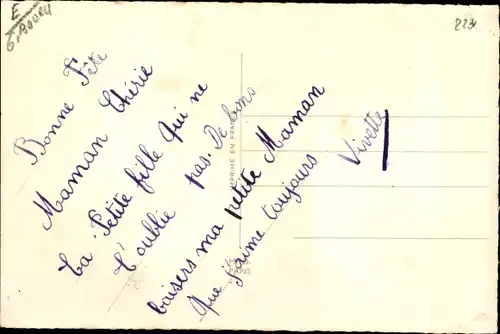 E
223
Bonne Fête
Maman Chérie
La Petite fille qui ne
t'oublie pas. De bons
baisers ma petite Maman
que j'aime toujours
Vivette
IMPRIMÉ EN FRANCE
PARIS